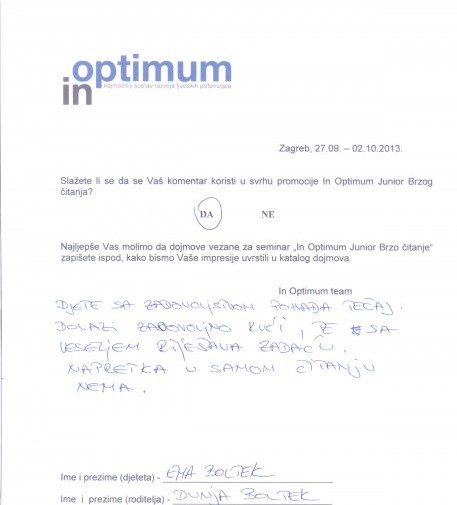 optimum
in
najmoćniji sustav razvoja ljudskih potencijala
Zagreb, 27.09. – 02.10.2013.
Slažete li se da se Vaš komentar koristi u svrhu promocije In Optimum Junior Brzog
čitanja?
DA NE
Najljepše Vas molimo da dojmove vezane za seminar „In Optimum Junior Brzo čitanje“
zapišete ispod, kako bismo Vaše impresije uvrstili u katalog dojmova.
In Optimum team
DJETE SA ZADOVOLJSTVOM POHAĐA TEČAJ.
DOLAZI ZADOVOLJNO KUĆI, TE SA
VESELJEM RIJEŠAVA ZADAĆU.
NAPRETKA U SAMOM ČITANJU
NEMA.
Ime i prezime (djeteta) - EMA BOLTEK
Ime i prezime (roditelja) - DUNJA BOLTEK